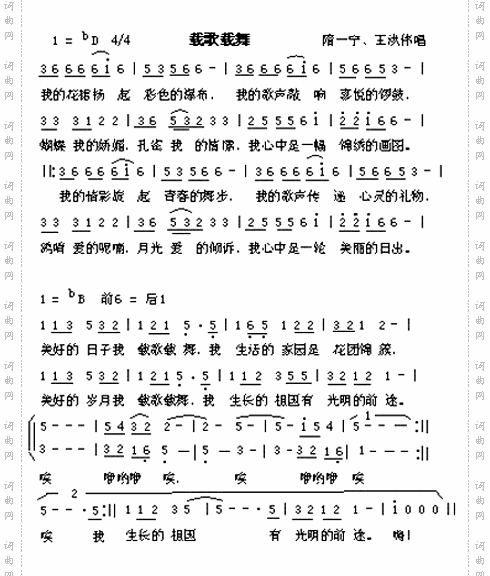 1 = bD 4/4 载歌载舞 隋一宁、王洪伟唱
3 6 6 6 6 i 6 | 5 3 5 6 6 - | 3 6 6 6 6 i 6 | 5 6 6 5 3 - |
我的花裙扬 起 彩色的瀑布. 我的歌声敲 响 喜悦的锣鼓.
3 3 3 1 2 2 | 3 6 5 3 2 3 3 | 2 5 5 5 6 i | 2 2 i 6 6 - |
蝴蝶 我的娇媚. 孔雀 我 的情愫. 我心中是一幅 锦绣的画图。
||: 3 6 6 6 6 i 6 | 5 3 5 6 6 - | 3 6 6 6 6 i 6 | 5 6 6 5 3 - |
我的情彩旋 起 青春的舞步. 我的歌声传 递 心灵的礼物.
3 3 3 1 2 2 | 3 6 5 3 2 3 3 | 2 5 5 5 6 i | 2 2 i 6 6 - |
鸿哨 爱的呢喃. 月光 爱 的倾诉. 我心中是一轮 美丽的日出。
1 = bB 前6 = 后1
1 1 3 5 3 2 | 1 2 1 5 · 5 | 1 6 5 1 2 2 | 3 2 1 2 - |
美好的 日子我 载歌载 舞. 我 生活的 家园是 花团锦 簇.
1 1 3 5 3 2 | 1 2 1 5 · 5 | 1 1 2 3 5 5 | 3 2 1 2 1 - |
美好的 岁月我 载歌载舞. 我 生长的 祖国有 光明的前 途。
5 - - - | 5 4 3 2 2 - | 2 - 5 - | 5 - i 5 4 | 1 5 - - - :||
3 - - - | 3 2 1 6 5 - | 5 - 3 - | 3 - 3 2 1 6 | 1 - - - :||
唉 咿哟唉. 唉 咿哟 唉
2
5 - - · 5 :|| 1 1 2 3 5 | 5 - - · 5 | 3 2 1 2 1 - | i 0 0 0 ||
唉 我 生长的 祖国 有 光明的前 途。 嗨!
词曲网
词曲网
词曲网
词曲网
词曲网
词曲网
词曲网
词曲网
词曲网
词曲网